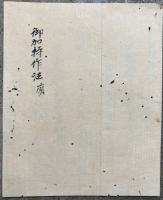 御加持作法